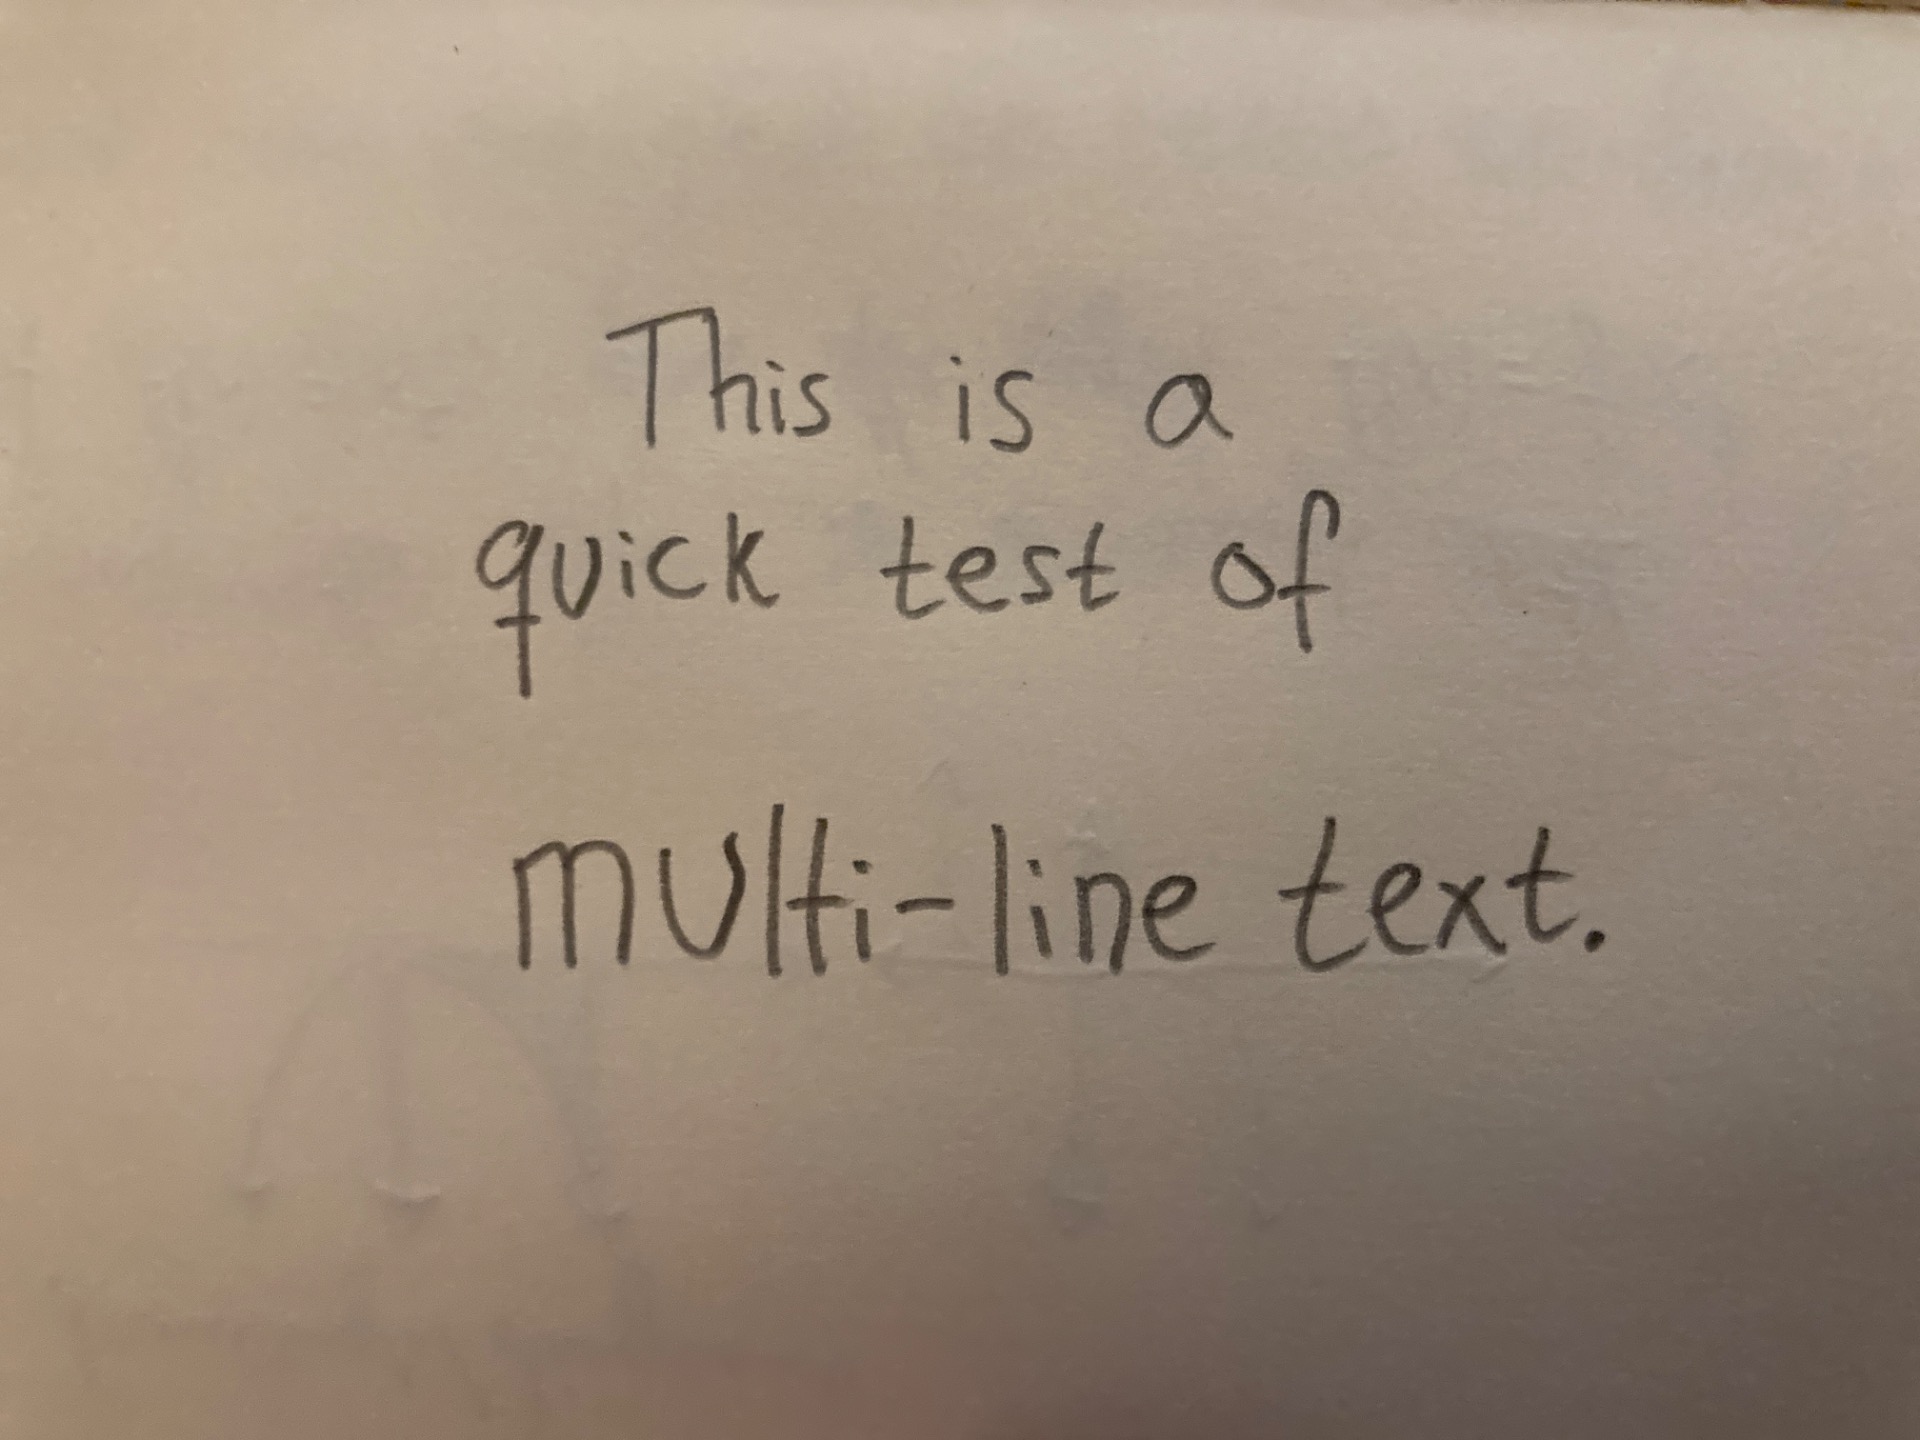 This is a
quick test of
multi-line text.